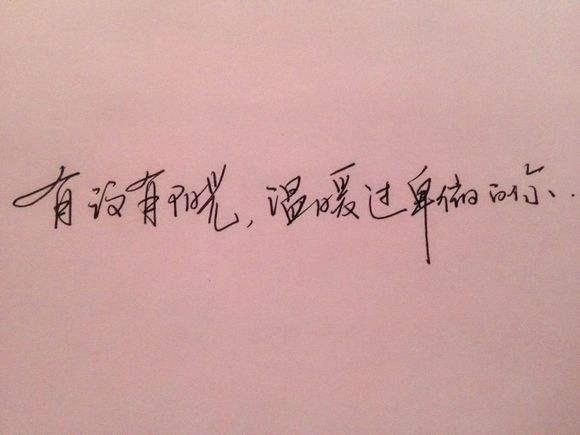 有没有阳光,温暖过卑微的你.